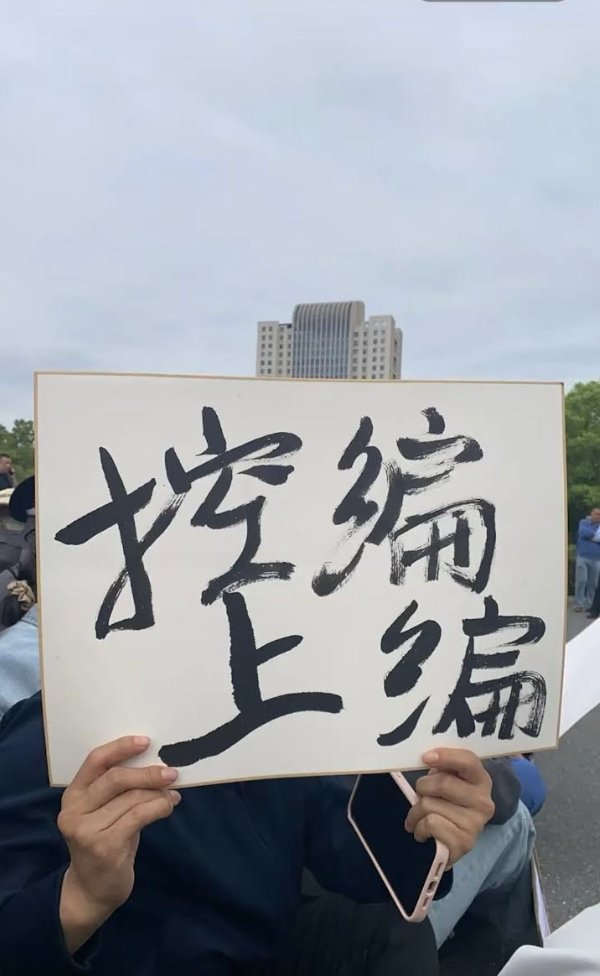 控编
上编